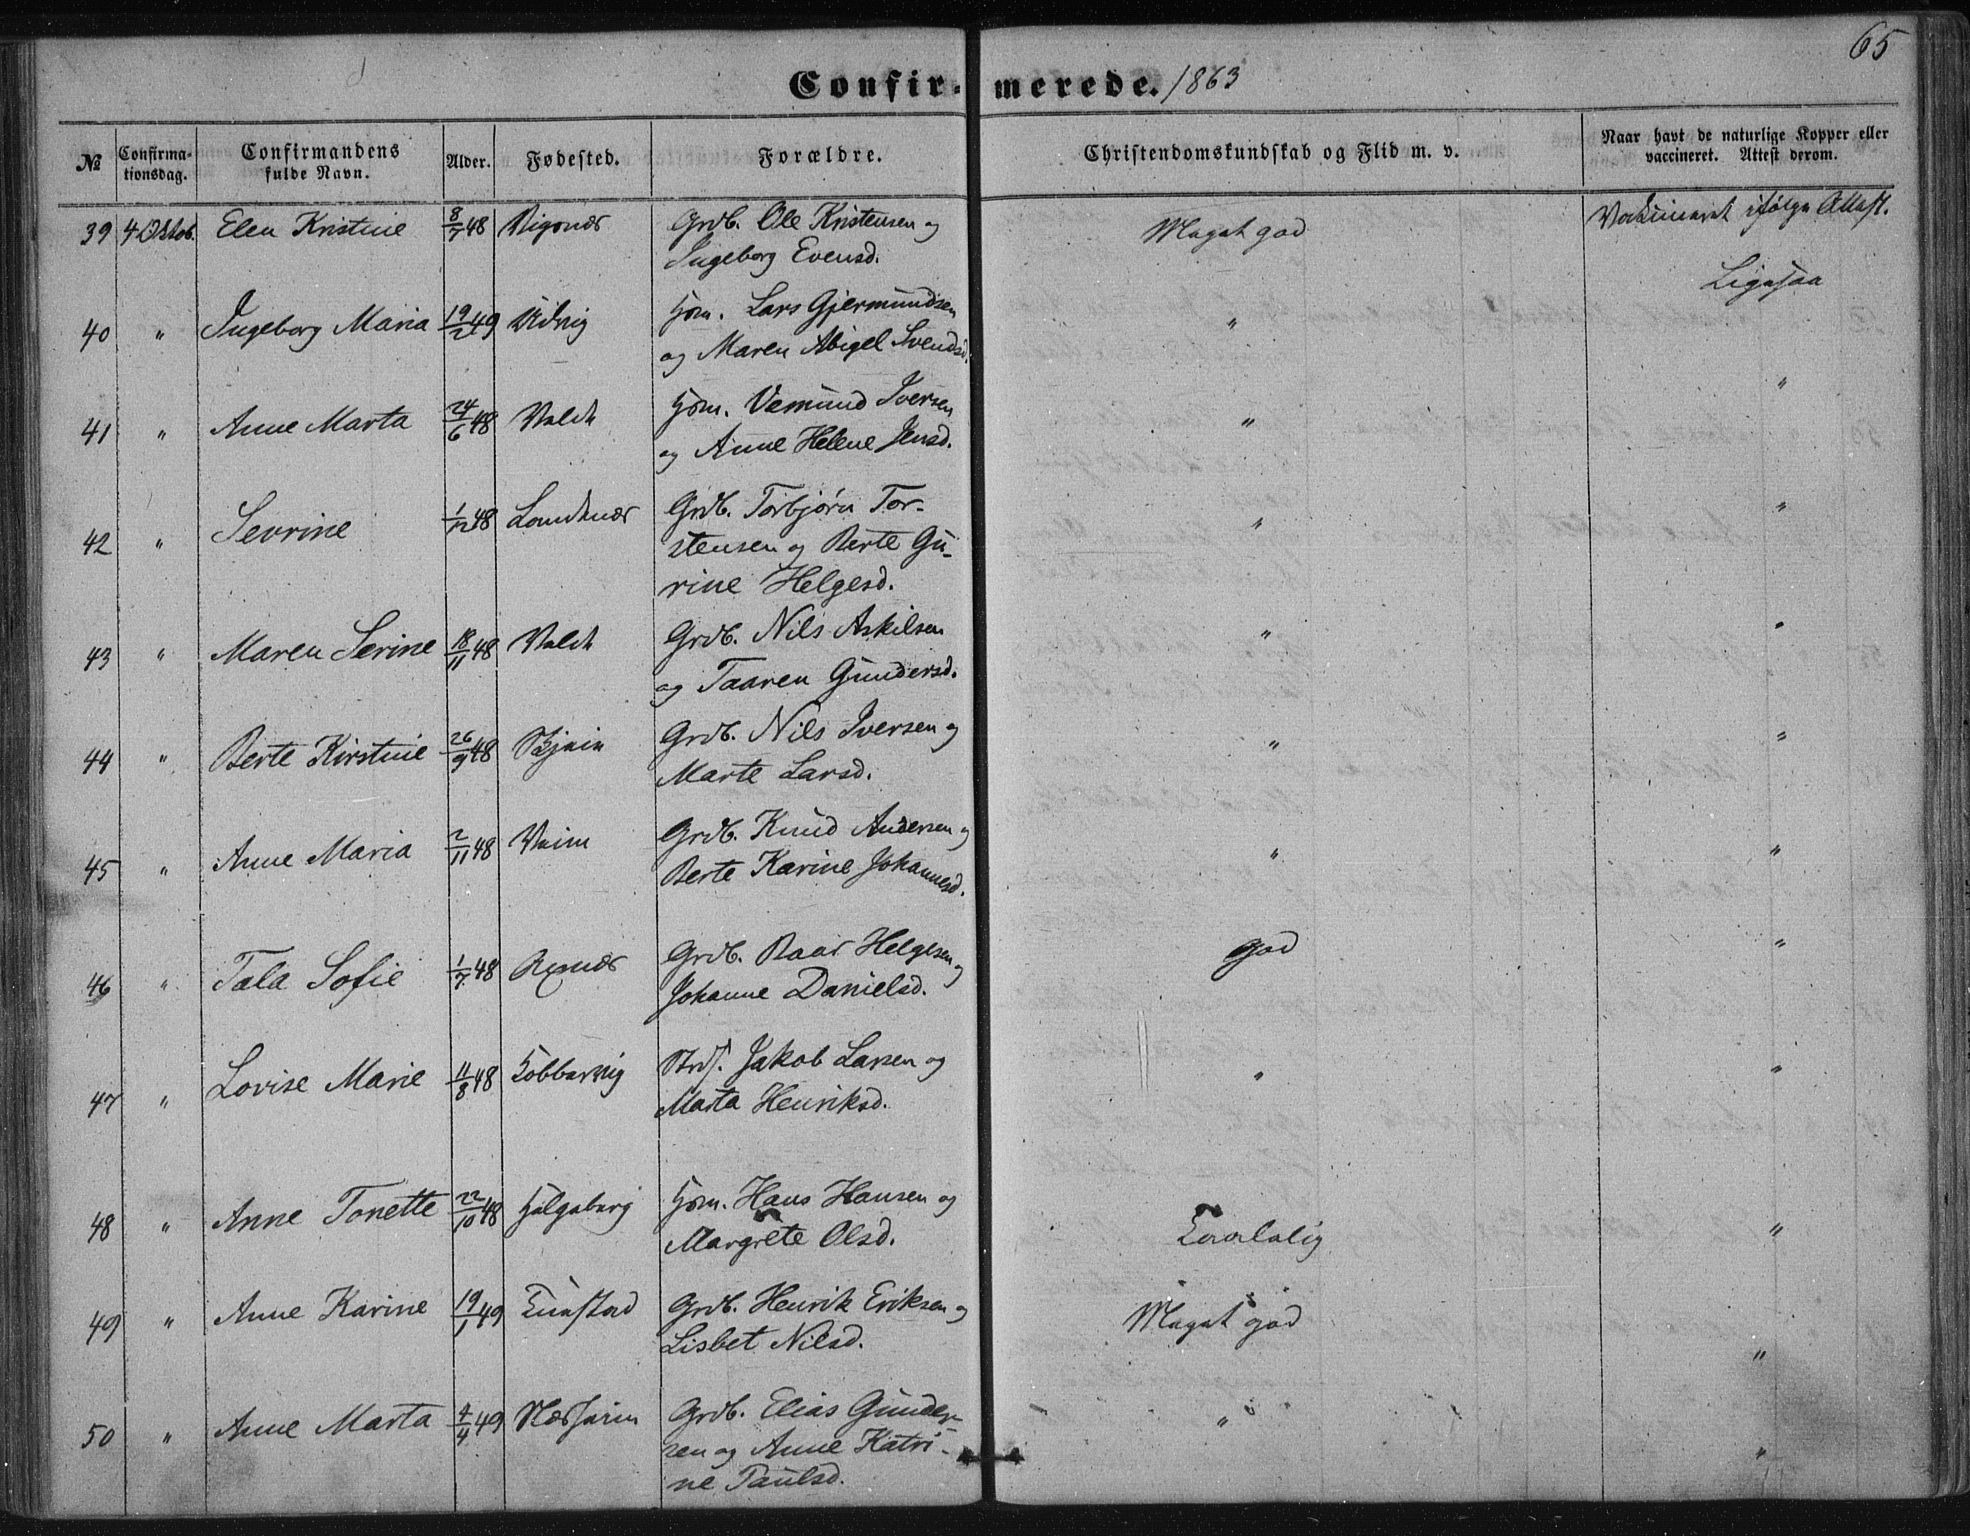 65
Confirmerede. 1863
No Confirmationsdag. Confirmandens fulde Navn. Alder. Fødested. Forældre. Christendomskundskab og Flid m. v. Naar havt de naturlige Kopper eller vaccineret. Attest derom.
39 4 Oktob. Elen Kristine 8/7 48 Grdb. Ole Kristensen og Meget god Vakcineret ifølge Attest.
Ingeborg Evensd.
Ligesaa
40 " Ingeborg Maria 19/2 49 Udvig Hsm. Lars Gjermundsen "
og Maren Abigel Svendsd.
41 " Anne Marta 24/6 48 Hsm. Vemund Iversen " "
og Anne Helene Jensd.
42 " Sevrine 1/12 48 Grdb. Torbjørn Tor- " "
stensen og Berte Gu-
rine Helgesd.
43 " Maren Serine 18/11 48 Grdb. Nils Askilsen " "
og Taaren Gundersd.
44 " Berte Kirstine 26/9 48 Grdb. Nils Iversen og " "
Marte Larsd.
45 " Anne Maria 2/11 48 Grdb. Knud Andersen og " "
Berte Karine Johannesd.
46 " Tala Sofie 1/7 48 Grdb. Roar Helgesen og god "
Johanne Danielsd.
47 " Lovise Marie 11/8 48 Kobbervig Strds. Jakob Larsen og " "
Marta Henriksd.
48 " Anne Tonette 22/10 48 Hsm. Hans Hansen og Taalelig "
Margrete Olsd.
49 " Anne Karine 19/1 49 Grdb. Henrik Eriksen og Meget god "
Lisbet Nilsd.
50 " Anne Marta 4/4 49 Næsheim Grdb. Elias Gunder- " "
sen og Anne Katri-
ne Paulsd.